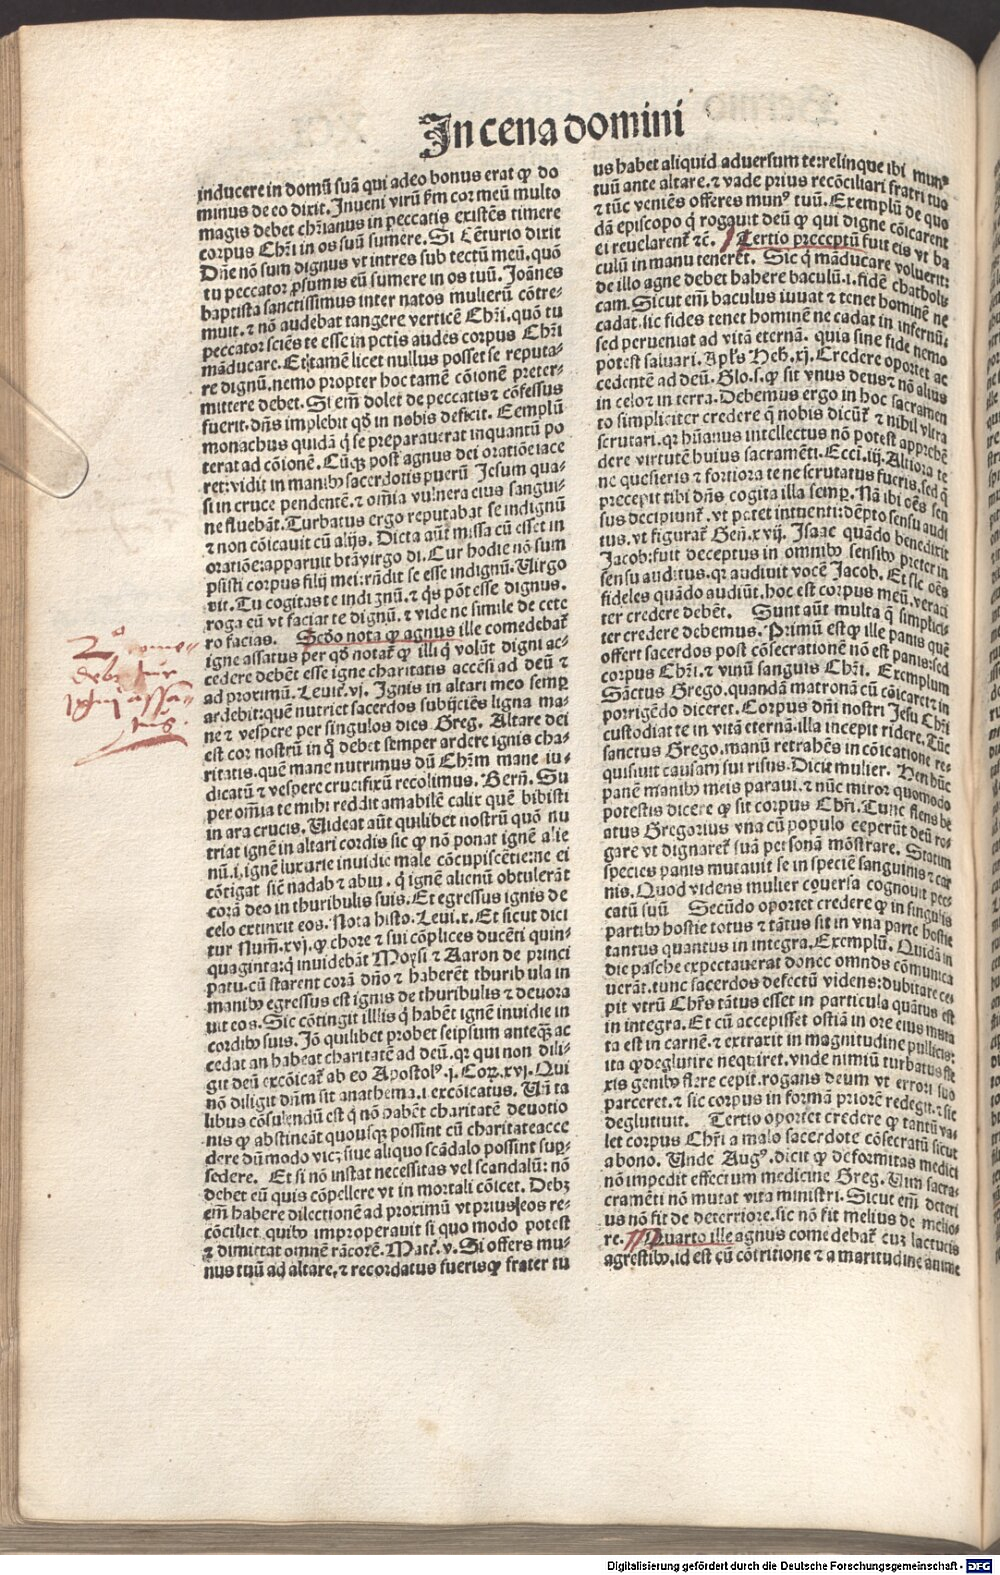 In cena domini
inducere in domū suā qui adeo bonus erat ꝙ do
minus de eo dixit. Inueni virū ẜm cor meū multo
magis debet chr̄ianus in peccatis existēs timere
corpus Chr̄i in os suū sumere. Si Cēturio dixit
Dn̄e nō sum dignus vt intres sub tectū meū. quō
tu peccator p̄sumis eū sumere in os tuū. Joānes
baptista sanctissimus inter natos mulierū cōtre⸗
muit. ⁊ nō audebat tangere verticē Chr̄i. quō tu
peccator sciēs te esse in pctīs audes corpus Chr̄i
māducare. Et tamē licet nullus posset se reputa⸗
re dignū. nemo propter hoc tamē cōionē preter⸗
mittere debet. Si em̄ dolet de peccatis ⁊ cōfessus
fuerit. dn̄s implebit qd̄ in nobis deficit. Eemplū
monachus quidā q̄ se preparauerat inquantū po
terat ad cōionē. Cūqꝫ post agnus dei oratiōe iace
ret: vidit in manibꝰ sacerdotis puerū Jesum qua⸗
si in cruce pendentē. ⁊ om̄ia vulnera eius sangui⸗
ne fluebāt. Turbatus ergo reputabat se indignū
⁊ non cōicauit cū alijs. Dicta aūt missa cū esset in
oratiōe: apparuit btā virgo di. Cur hodie nō sum
psisti corpus filij mei: rn̄dit se esse indignū. Uirgo
dit. Tu cogitas te indignū. ⁊ q̄s pōt esse dignus.
roga eū vt faciat te dignū. ⁊ vide ne simile de cete
ro facias. Scdo nota ꝙ agnus ille comedebat̄
igne assatus per qd̄ notat̄ ꝙ illi q̄ volūt digni ac⸗
cedere debēt esse igne charitatis accēsi ad deū ⁊
ad proximū. Leuit. vj. Ignis in altari meo semꝑ
ardebit: quē nutriet sacerdos subijciēs ligna ma⸗
ne ⁊ vespere per singulos dies Greg. Altare dei
est cor nostrū in q̄ debet semper ardere ignis cha⸗
ritatis. quē mane nutrimus dū Chr̄m mane iu⸗
dicatū ⁊ vespere crucifixū recolimus. Bern̄. Su
per om̄ia te mihi reddit amabilē calix quē bibisti
in ara crucis. Uideat aūt quilibet nostrū quō nu
triat ignē in altari cordis sic ꝙ nō ponat ignē alie
nū. i. ignē luxurie inuidie male cōcupiscētie: ne ei
cōtigat sic̄ nadab ⁊ abiu. q̄ ignē alienū obtulerāt
corā deo in thuribulis suis. Et egressus ignis de
celo extinxit eos. Nota histo. Leui. x. Et sicut dici
tur Num̄. xvj. ꝙ chore ⁊ sui cōplices ducēti quin⸗
quaginta: q̄ inuidebāt Moysi ⁊ Aaron de princi
patu. cū starent corā dn̄o ⁊ haberēt thuribula in
manibꝰ egressus est ignis de thuribulis ⁊ deuora
uit eos. Sic cōtingit illis q̄ habēt ignē inuidie in
cordibꝰ suis. Jō quilibet probet seipsum anteqꝫ ac
cedat an habeat charitatē ad deū. qꝛ qui non dili⸗
git deū excōicat̄ ab eo Apostolꝰ. j. Coꝝ. xvj. Qui
nō diligit dn̄m sit anathema. i. excōicatus. Uñ ta
libus cōsulendū est q̄ nō habēt charitatē deuotio
nis ꝙ abstineāt quousqꝫ possint cū charitate acce
dere dūmodo vicꝫ siue aliquo scādalo possint suꝑ⸗
sedere. Et si nō instat necessitas vel scandalū: nō
debet eū quis cōpellere vt in mortali cōicet. Debꝫ
em̄ habere dilectionē ad proximū vt prius eos re⸗
cōciliet quibꝰ improperauit si quo modo potest
⁊ dimittat omnē rācorē. Mat̄. v. Si offers mu⸗
nus tuū ad altare. ⁊ recordatus fueris ꝙ frater tu
us habet aliquid aduersum te: relinque ibi munꝰ
tuū ante altare. ⁊ vade prius recōciliari fratri tuo
⁊ tūc veniēs offeres munꝰ tuū. Exemplū de quo
dā episcopo q̄ rogauit deū ꝙ qui digne cōicarent
ei reuelarent̄ ⁊c̄. Tertio preceptū fuit eis vt ba
culū in manu tenerēt. Sic q̄ māducare voluerit:
de illo agne debet habere baculū. i. fidē chatholi⸗
cam. Sicut em̄ baculus iuuat ⁊ tenet hominē ne
cadat. sic fides tenet hominē ne cadat in infernū.
sed perueniat ad vitā eternā. quia sine fide nemo
potest saluari. Apl̄s Heb̄. xj. Credere oportet ac
cedentē ad deū. Glo. s. ꝙ sit vnus deus ⁊ nō alius
in celo ⁊ in terra. Debemus ergo in hoc sacramen
to simpliciter credere q̄ nobis dicūt̄ ⁊ nihil vltra
scrutari. qꝛ hūanus intellectus nō potest apprehē
dere virtutē huius sacramēti. Ecci. iij. Altiora te
ne quesieris ⁊ fortiora te ne scrutatus fueris. sed q̄
precepit tibi dn̄s cogita illa semꝑ. Nā ibi oēs sen
sus decipiunt̄. vt patet intuenti: dēpto sensu audi
tus. vt figurat̄ Gen̄. xvij. Isaac quādo benedixit
Jacob: fuit deceptus in omnibꝰ sensibꝰ preter in
sensu auditus. qꝛ audiuit vocē Jacob. Et sic oēs
fideles quādo audiūt. hoc est corpus meū. veraci
ter credere debēt. Sunt aūt multa q̄ simplici⸗
ter credere debemus. Primū est ꝙ ille panis quē
offert sacerdos post cōsecrationē nō est panis: sed
corpus Chr̄i. ⁊ vinū sanguis Chr̄i. Exemplum
Sāctus Grego. quandā matronā cū cōicaret ⁊ in
porrigēdo diceret. Corpus dn̄i nostri Jesu Chr̄i
custodiat te in vitā eternā. illa incepit ridere. Tūc
sanctus Grego. manū retrahēs in cōicatione re⸗
quisiuit causam sui risus. Dicit mulier. Hen hūc
panē manibꝰ meis paraui. ⁊ nūc miror quomodo
potestis dicere ꝙ sit corpus Chr̄i. Tunc flens be
atus Gregorius vna cū populo ceperūt deū ro⸗
gare vt dignaret̄ suā personā mōstrare. Statim
species panis mutauit se in speciē sanguinis ⁊ car
nis. Quod videns mulier cōuersa cognouit pec⸗
catū suū Secūdo oportet credere ꝙ in singulis
partibꝰ hostie totus ⁊ tātus sit in vna parte hostie
tantus quantus in integra. Exemplū. Quidā in
die pasche expectauerat donec omnes cōmunica
uerāt. tunc sacerdos defectū videns: dubitare ce⸗
pit vtrū Chr̄s tātus esset in particula quātus est
in integra. Et cū accepisset ostiā in ore eius muta
ta est in carnē. ⁊ extraxit in magnitudine pullicis:
ita ꝙ deglutire nequiret. vnde nimiū turbatus fle
xis genibꝰ flere cepit. rogans deum vt errori suo
parceret. ⁊ sic corpus in formā priorē redegit. ⁊ sic
deglutiuit. Tertio oportet credere ꝙ tantū va⸗
let corpus Chr̄i a malo sacerdote cōsecratū sicut
a bono. Unde Augꝰ. dicit ꝙ deformitas medici
nō impedit effectum medicine Greg. Uim sacra⸗
cramēti nō mutat vita ministri. Sicut em̄ deteri
us nō fit de deteriore. sic nō fit melius de melio⸗
re. Quarto ille agnus comedebat̄ cuꝫ lactucis
agrestibꝰ. id est cū cōtritione ⁊ amaritudine anime
2o come⸗
debat̄ igne
assa⸗
tus.
Digitalisierung gefördert durch die Deutsche Forschungsgemeinschaft - DFG